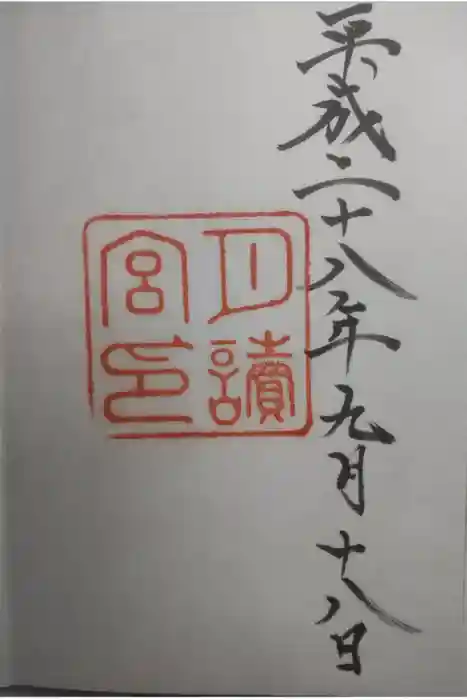 平成二十八年九月十八日
月讀
宮印